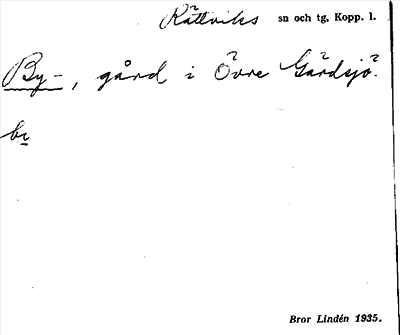 Rättviks sn och tg, Kopp. l.
By-, gård i Övre Gärdsjö.
by
Bror Lindén 1935.